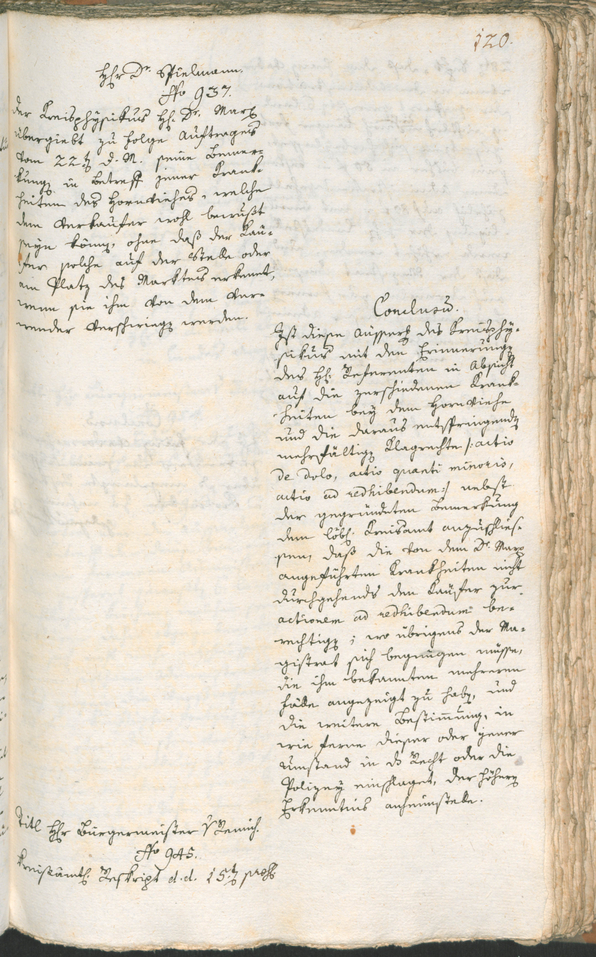 120.
Hr Dr. Spielmann.
No 937.
Der Kreisphysikus H. Dr. Marx
übergiebt zu folge Auftrages
vom 22t d. M. seine Bemer-
kung in betreff jener Krank-
heiten des Hornviehes, welche
dem Verkäufer wohl bewußt
seyn könn, ohne daß der Käu-
fer solche auf der Stelle oder
am Platz des Marktes erkennt,
wenn sie ihm von dem Ver-
werden.
Conclusum.
Ist diese des Kreisphy-
sikus mit den Erinnerung
des H. Referenten in Absicht
auf die verschiedenen Krank-
heiten bey dem Hornviehe
und die daraus entspringende
mehrfältige Klagrechte /: actio
de dolo, actio quanti minoris,
actio ad redhibendum :/ nebst
der gegründeten Bemerkung
dem löbl. Kreisamt anzuschlies-
sen, daß die von dem Dr. Marx
angeführten Krankheiten nicht
durchgehends den Käufer zur
actionem ad redhibendum be-
rechtige; wo übrigens der Ma-
gistrat sich begnügen müsse,
die ihm bekannten mehreren
Fälle angezeigt zu hab, und
die weitere Bestimmung, in
wie ferne dieser oder jener
Umstand in ds Recht oder die
Polizey einschlaget, der höhern
Erkenntnis anheimstelle.
Titl Hr Bürgermeister
No 945.
Kreisämtl. Reskript d.d. 15t